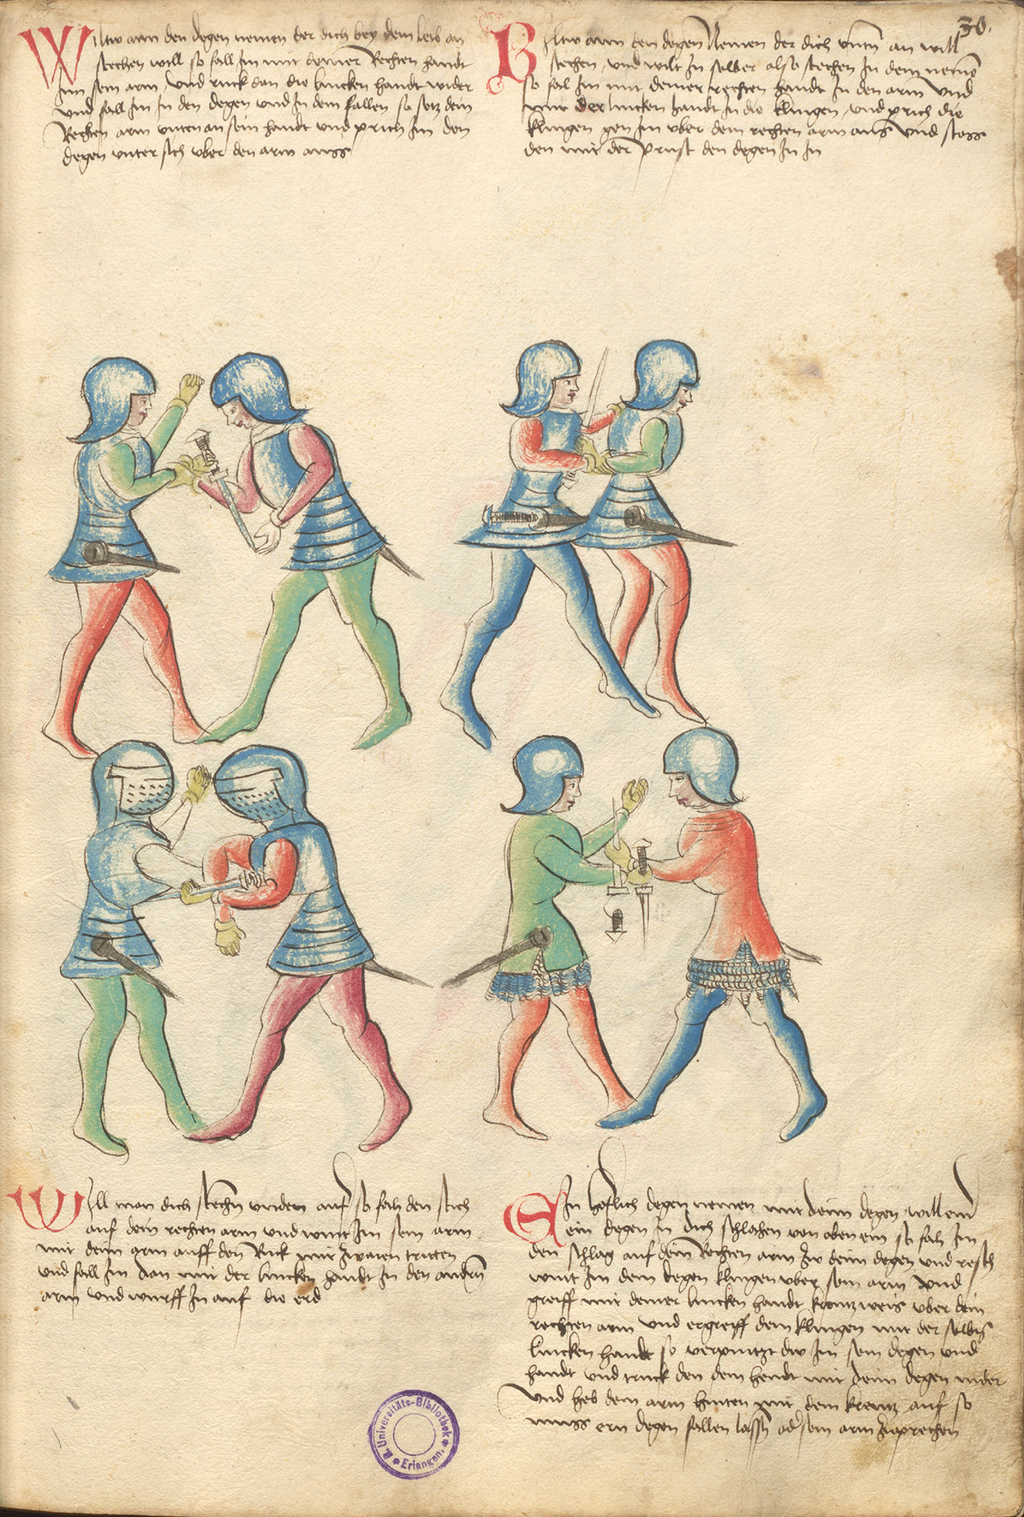 30.
Wiltw aim den degen nemen der dich bey dem leib an
stechen will so fall Im mit deiner Rechten handt
Inn sein arm / und ruck dan die lincken handt wider
und fall im in den degen und in dem fallen so setz dein
Rechten arm unten an sein handt und prich Im den
degen unter sich uber den arm auss
Biltw aim den degen Nemen der dich untn an will
stechen / und wilt In selber also stechen In dem nemen
so fal Im mit deiner rechten handt In den arm und
mit der lincken handt In die klingen / und prich die
klingen gen Im uber dem rechten arm aus und stoss
den mit der prust den degen In In
Will man dich stechn unden auf so fach den stich
auf dein rechten arm und wint Im sein arm
mit deim arm auff den Rick mit zwaien tritten
und fall Im dan mit der lincken handt In den andern
arm und wurff In auf die erd
Ein hoflich degen nemen mit deim degen / will einr
ein degen In dich schlachen von oben ein so fach Im
den schlag auf deim Rechten arm In deim degen und resch
wint Im dem degen klingen uber sein arm und
greiff mit deiner lincken handt kreutzweis uber dein
rechten arm und ergreiff dein klingen mit der selbig
lincken handt so verpintzt dw Im sein degen und
handt und truck den dem hendt mit deim degen nider
und heb dein arm hinten mit dem kreutz auf so
muss ern degen fallen lassn ad sein arm zuprechen
K. Universitäts-Bibliothek
Erlangen.